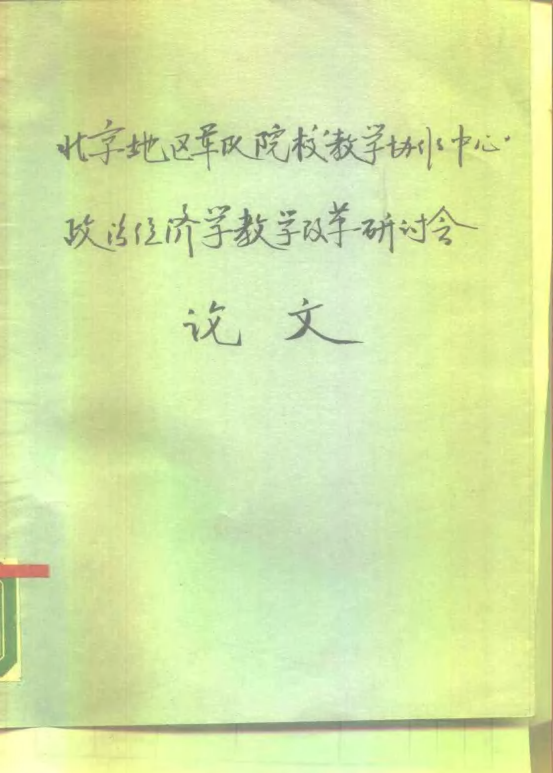 北京地区军队院校教学协作中心
政治经济学教学改革研讨会
论文